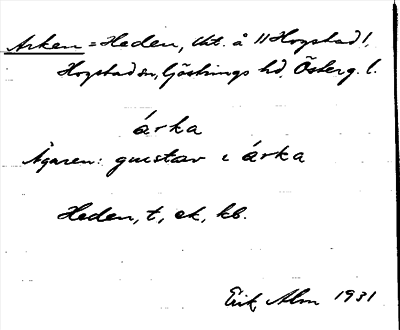 Arken = Heden, tht. å 11 Hogstad 1,
Hogstad sn, Göstrings hd, Österg. l.
árka
Ägaren: gustav ɩ árka
Heden, t, ek, kb.
Erik Alm 1931